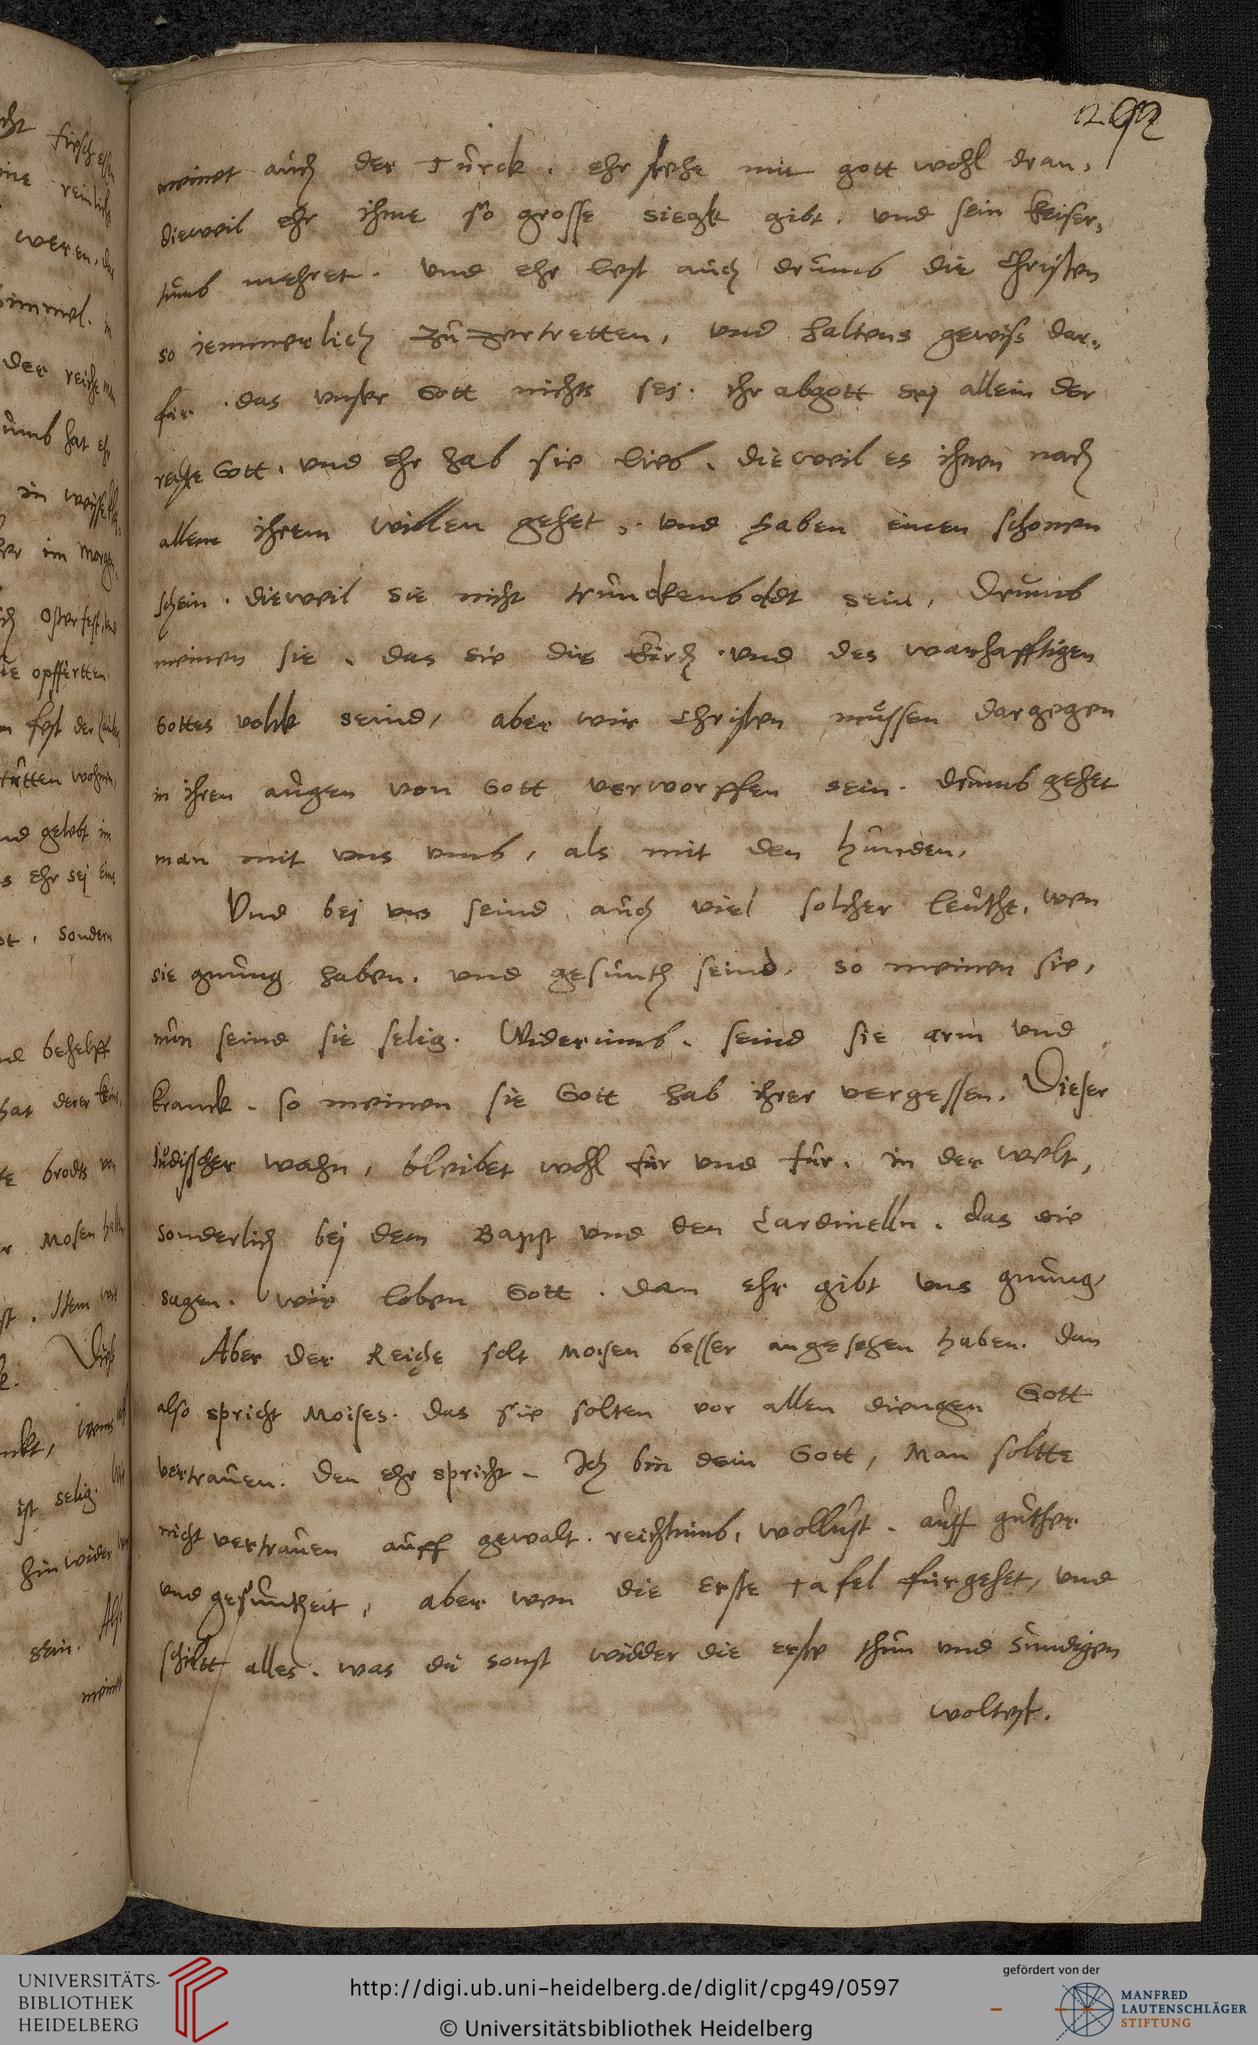 292
meinet auch der Turck. ehr stehe mit gott wohl dran,
dieweil ehr ihme so grosse siegk gibt. und sein keiser,
tumb mehret. und ehr lest auch drumb die Christen
so iemmerlich zu zertretten, und haltens gewiss dar,,
fur. das unser Gott nichts sej. ihr abgott sej allein der
rechte Gott. und ehr hab sie lieb. dieweil es ihnen nach
allem ihrem willen gehet, und haben einen schonen
schein. dieweil sie nicht trunckenboldt sein, Drumb
meinen sie. das sie die kirch und des warhafftigen
Gottes volck seind, aber wir Christen müssen dargegen
in ihren augen von Gott verworffen sein. Drumb gehet
man mit uns umb, als mit den hunden,
Und bej uns seind auch viel solcher leuthe, wen
sie gnung haben. und gesunth seind. so meinen sie,
nun seind sie selig. Widerumb. seind sie arm und
kranck. so meinen sie Gott hab ihrer vergessen. Dieser
iüdisscher wahn, bleibet wohl fur und fur. in der welt,
sonderlich bej dem Bapst und den Cardinelln. das sie
sagen. wir loben Gott. dan ehr gibt uns gnung,
Aber der Reiche solt Mosen besser angesehen haben. dan
also spricht Moises. das sie solten vor allen diengen Gott
vertrauen. den ehr spricht. Ich bin dein Gott, Man soltte
nicht vertrauen auff gewalt. reichtumb, wollust. auff guther
und gesuntheit, aber wen die erste tafel furgehet, und
schiltt alles. was du sonst widder die erste thun und sundigen
woltest.
UNIVERSITÄTS-
BIBLIOTHEK
HEIDELBERG
http://digi.ub.uni-heidelberg.de/diglit/cpg49/0597
© Universitätsbibliothek Heidelberg
gefördert von der
MANFRED
LAUTENSCHLÄGER
STIFTUNG